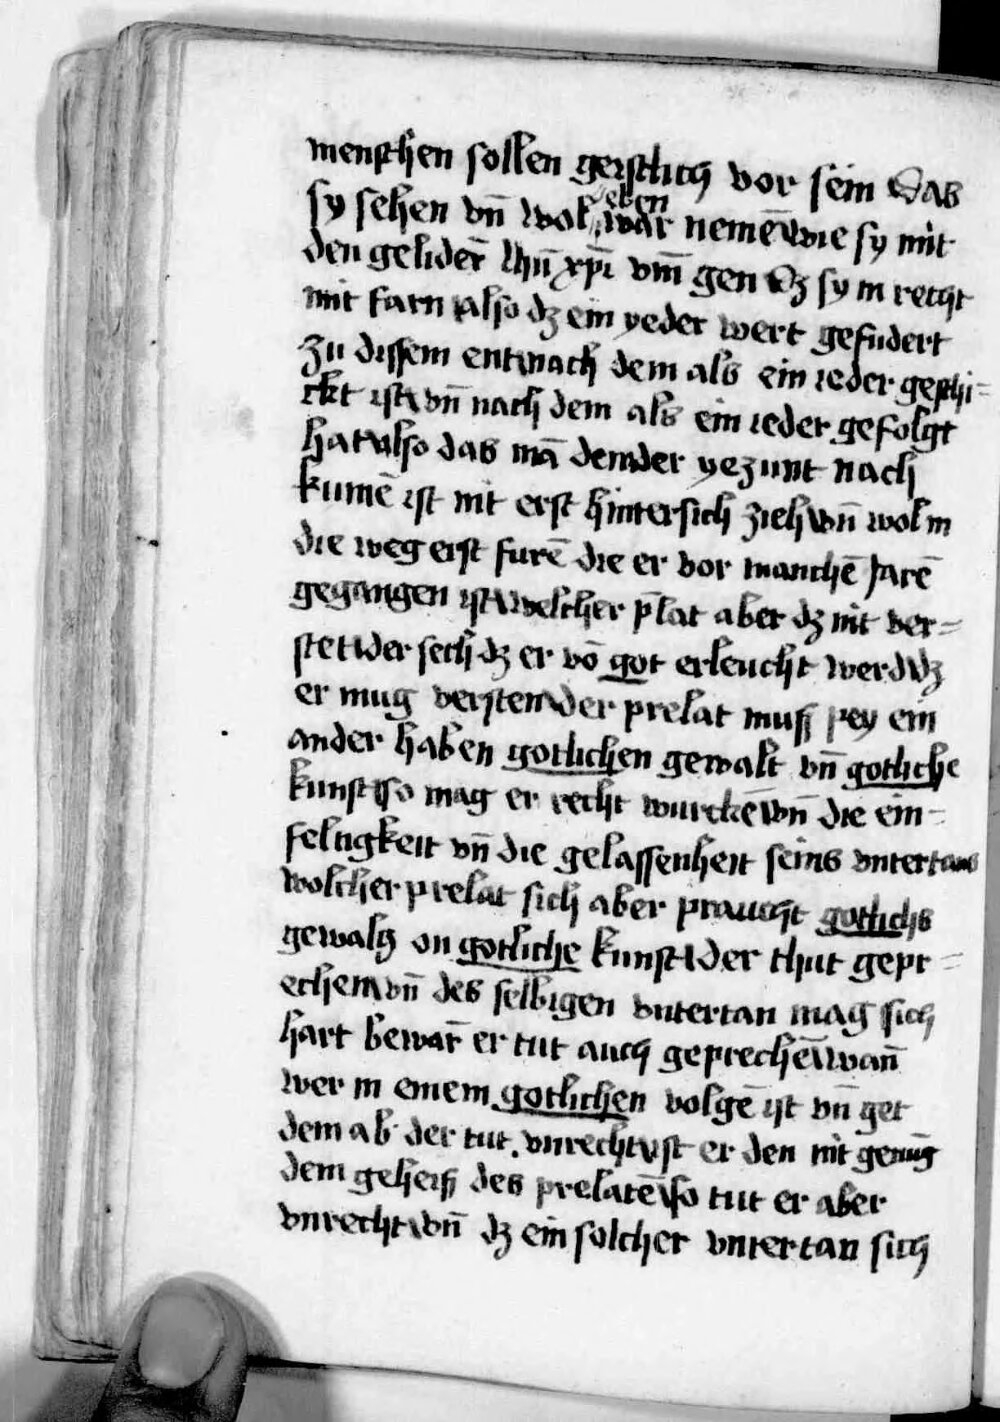 menschen sollen geistlich vor sein Das
sy sehen vn̄ wol eben war nemē wie sy mit
den gelider̄ Ihū xp̄i vm̄ gen Dz sy in recht
mit farn also dz ein yeder wert gefudert
zu dissem ent nach dem als ein ieder geschi=
ckt ist vn̄ nach dem als ein ieder gefolgt
hat also das mā dem der yezunt nach
kumē ist nit erst hintersich zieh vn̄ wol in
die weg erst furē die er vor manchē Jarē
gegangen ist welcher p̄lat aber dz nit ver=
stet der sech dz er vō got erleucht werd dz
er mug versten der prelat muß pey ein
ander haben gotlichen gewalt vn̄ gotliche
kunst so mag er recht wurckē vn̄ die ein=
feltigkeit vn̄ die gelassenheit seins vntertans
wolcher prelat sich aber praucht gotlichs
gewaltz on gotliche kunst der thut gepr=
echen vn̄ des selbigen vntertan mag sich
hart bewar̄ er tut auch geprechē wan̄
wer in einem gotlichen volgē ist vn̄ get
dem ab der tut vnrecht ist er den nit genūg
dem geheiß des prelatē so tut er aber
vnrecht vn̄ dz ein solcher vntertan sich